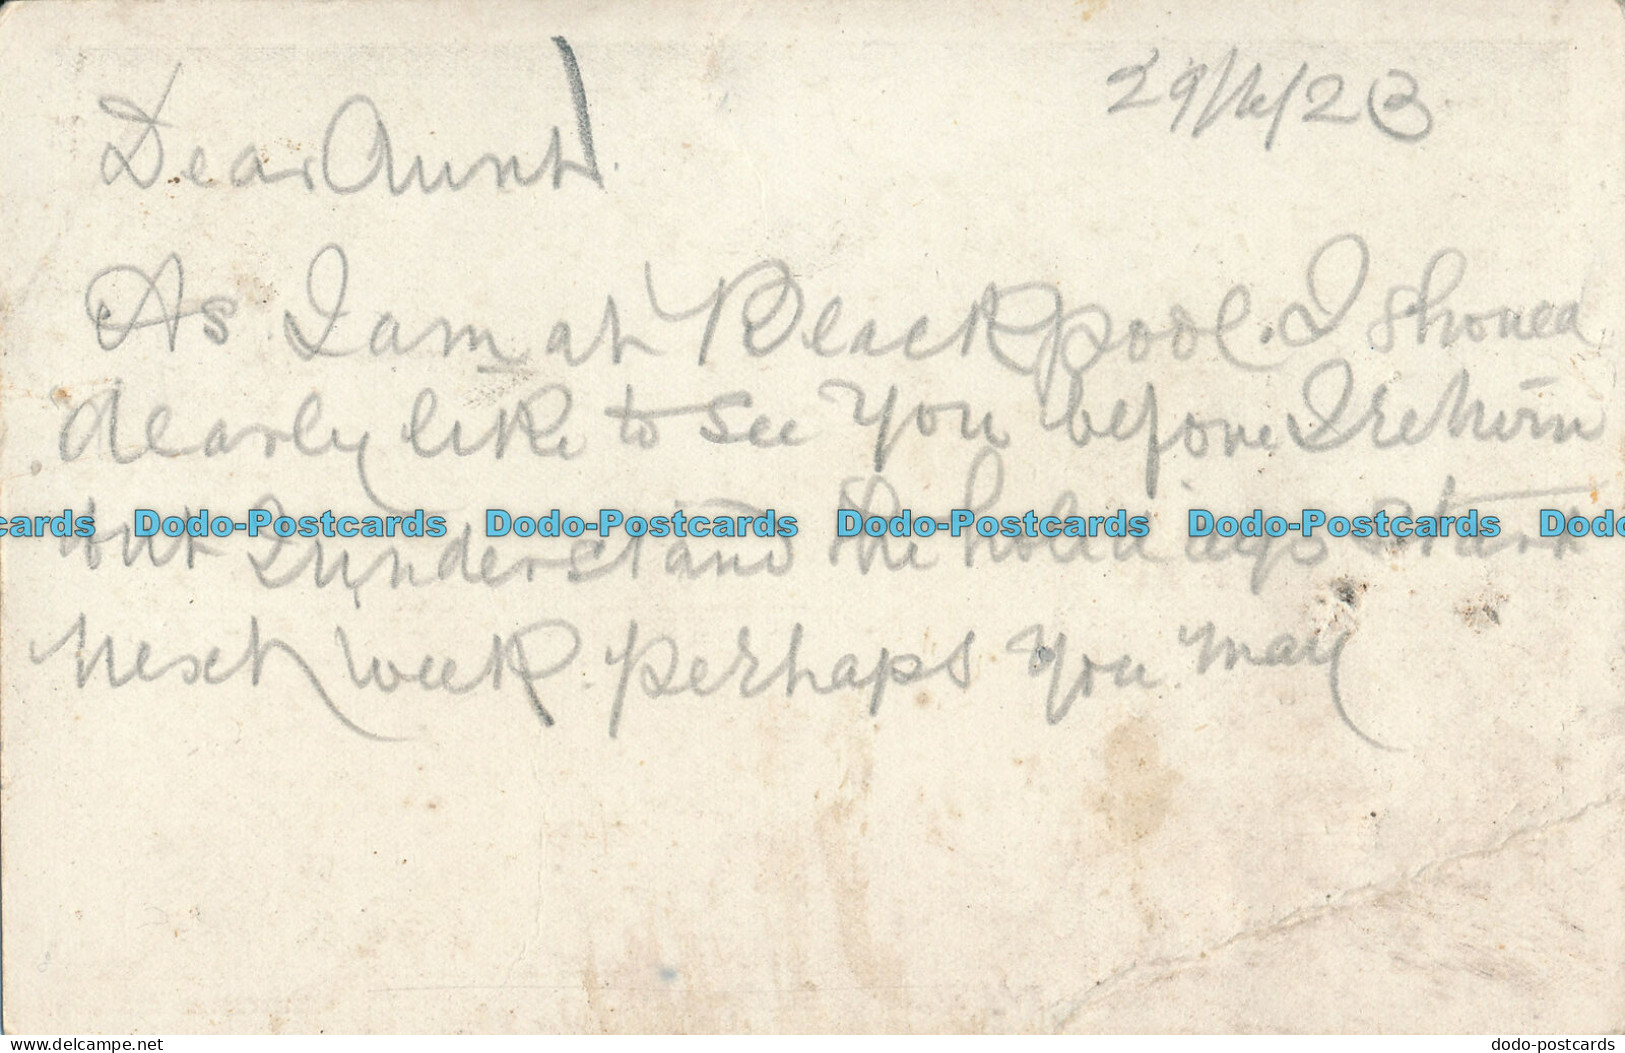 29/12/23
Dear Aunt.
As I am at Blackpool. I should
dearly like to see you before I return
but I understand the holidays start
next week. perhaps you may
cards Dodo-Postcards Dodo-Postcards Dodo-Postcards Dodo-Postcards Dodo
www.delcampe.net dodo-postcards